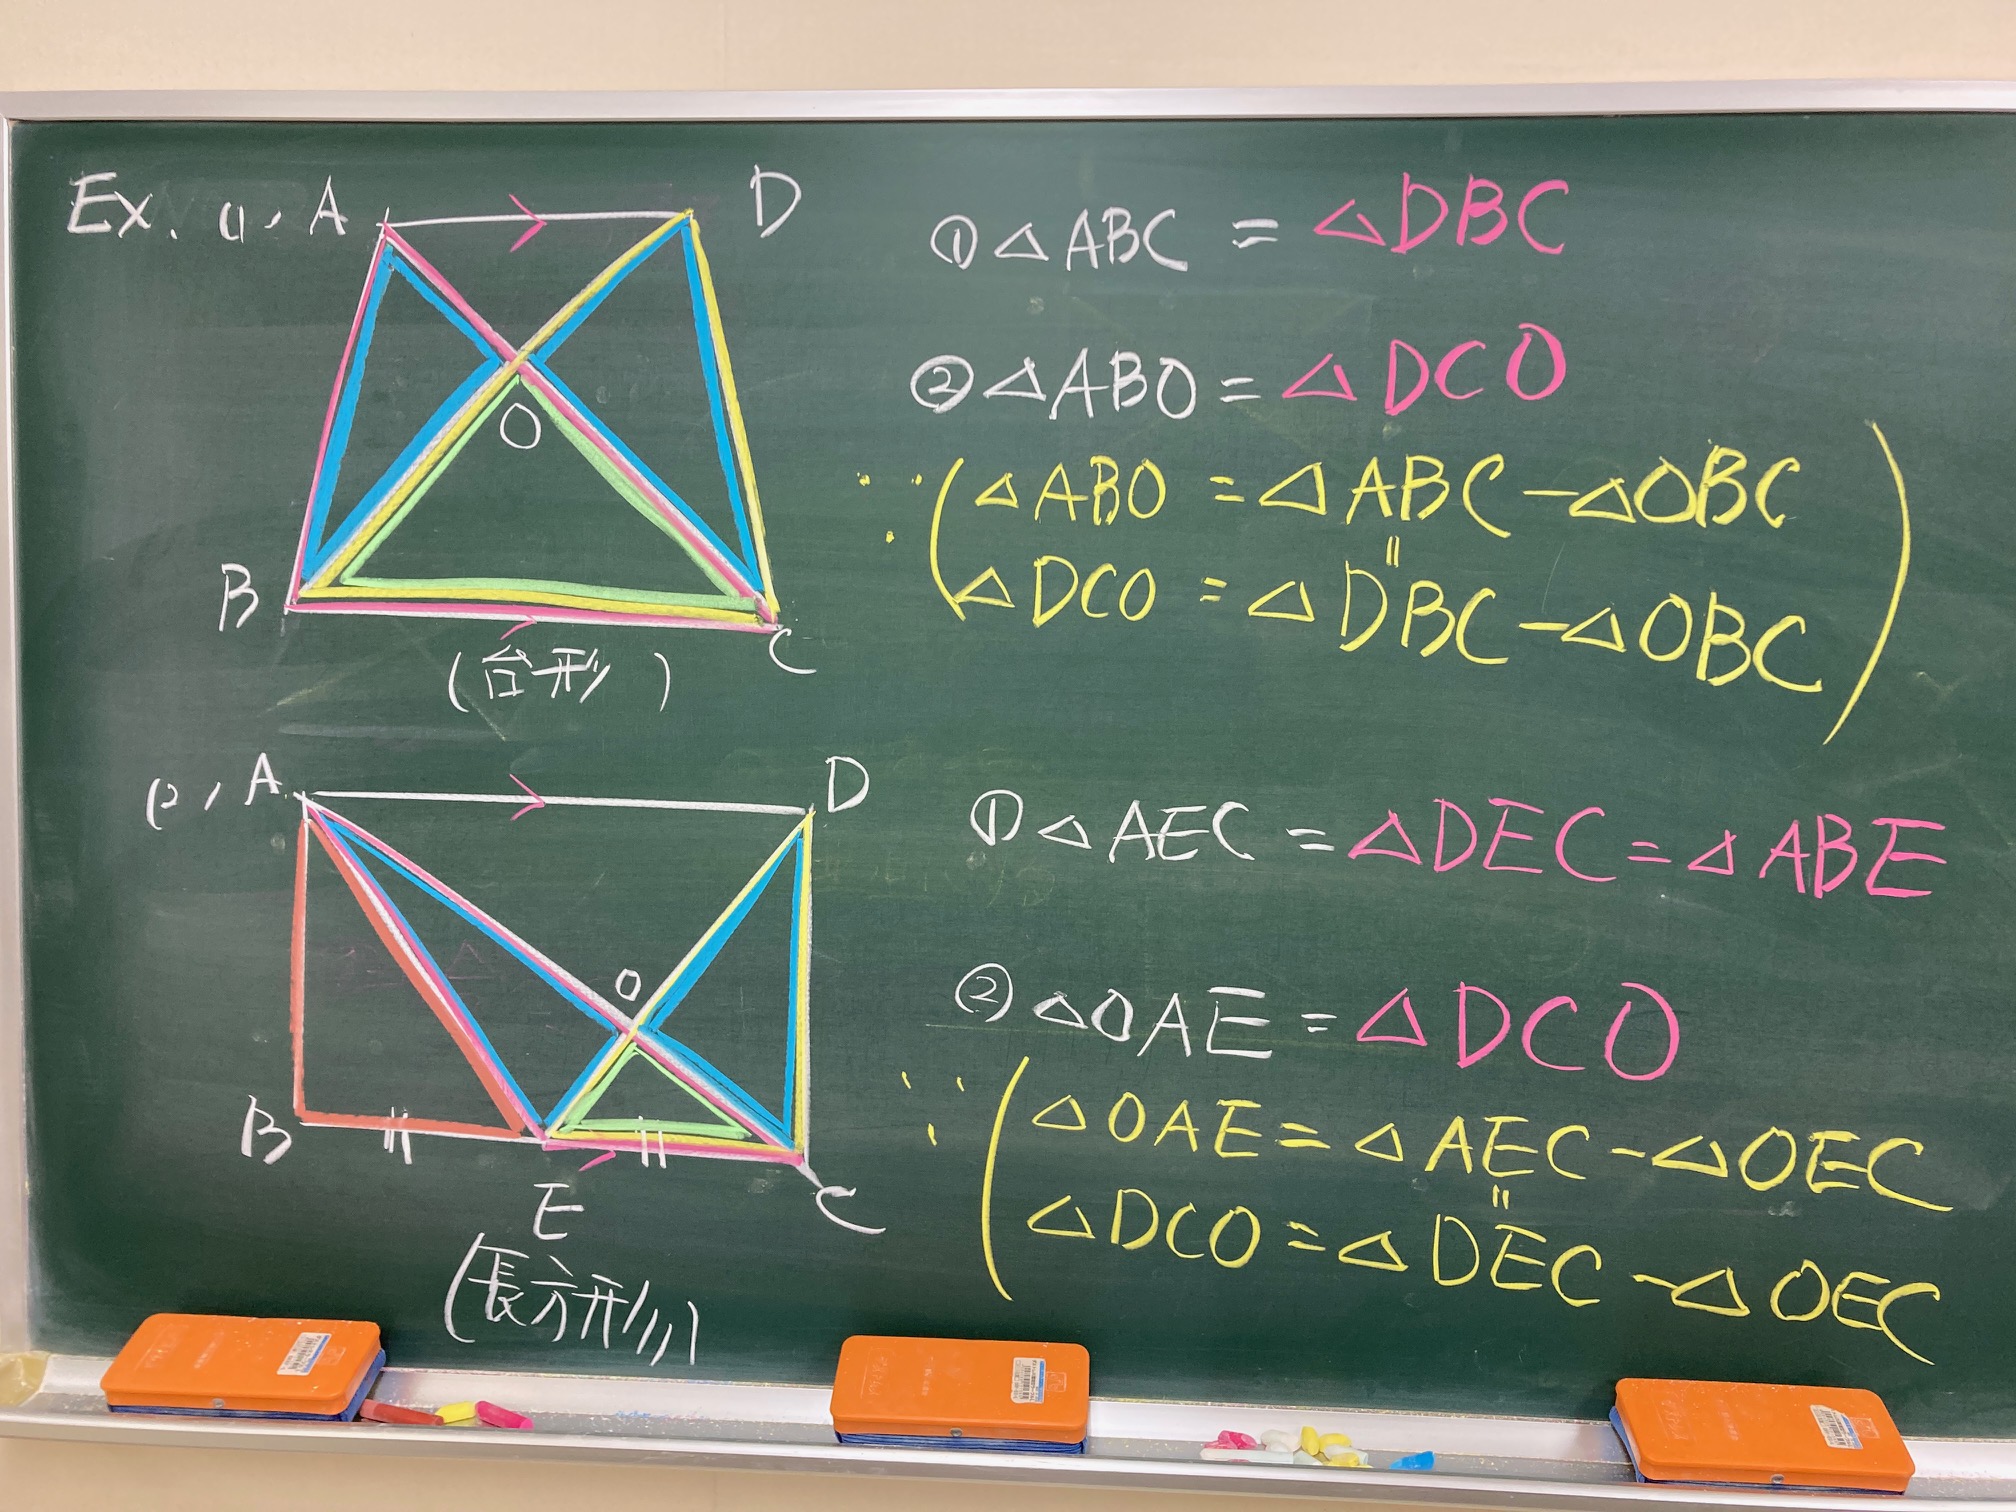 Ex. (1) A D
O
B C
(台形)
① △ABC = △DBC
② △ABO = △DCO
∵ (△ABO = △ABC - △OBC
॥
△DCO = △DBC - △OBC)
(2) A D
O
B E C
(長方形)
① △AEC = △DEC = △ABE
② △OAE = △DCO
∵ (△OAE = △AEC - △OEC
॥
△DCO = △DEC - △OEC